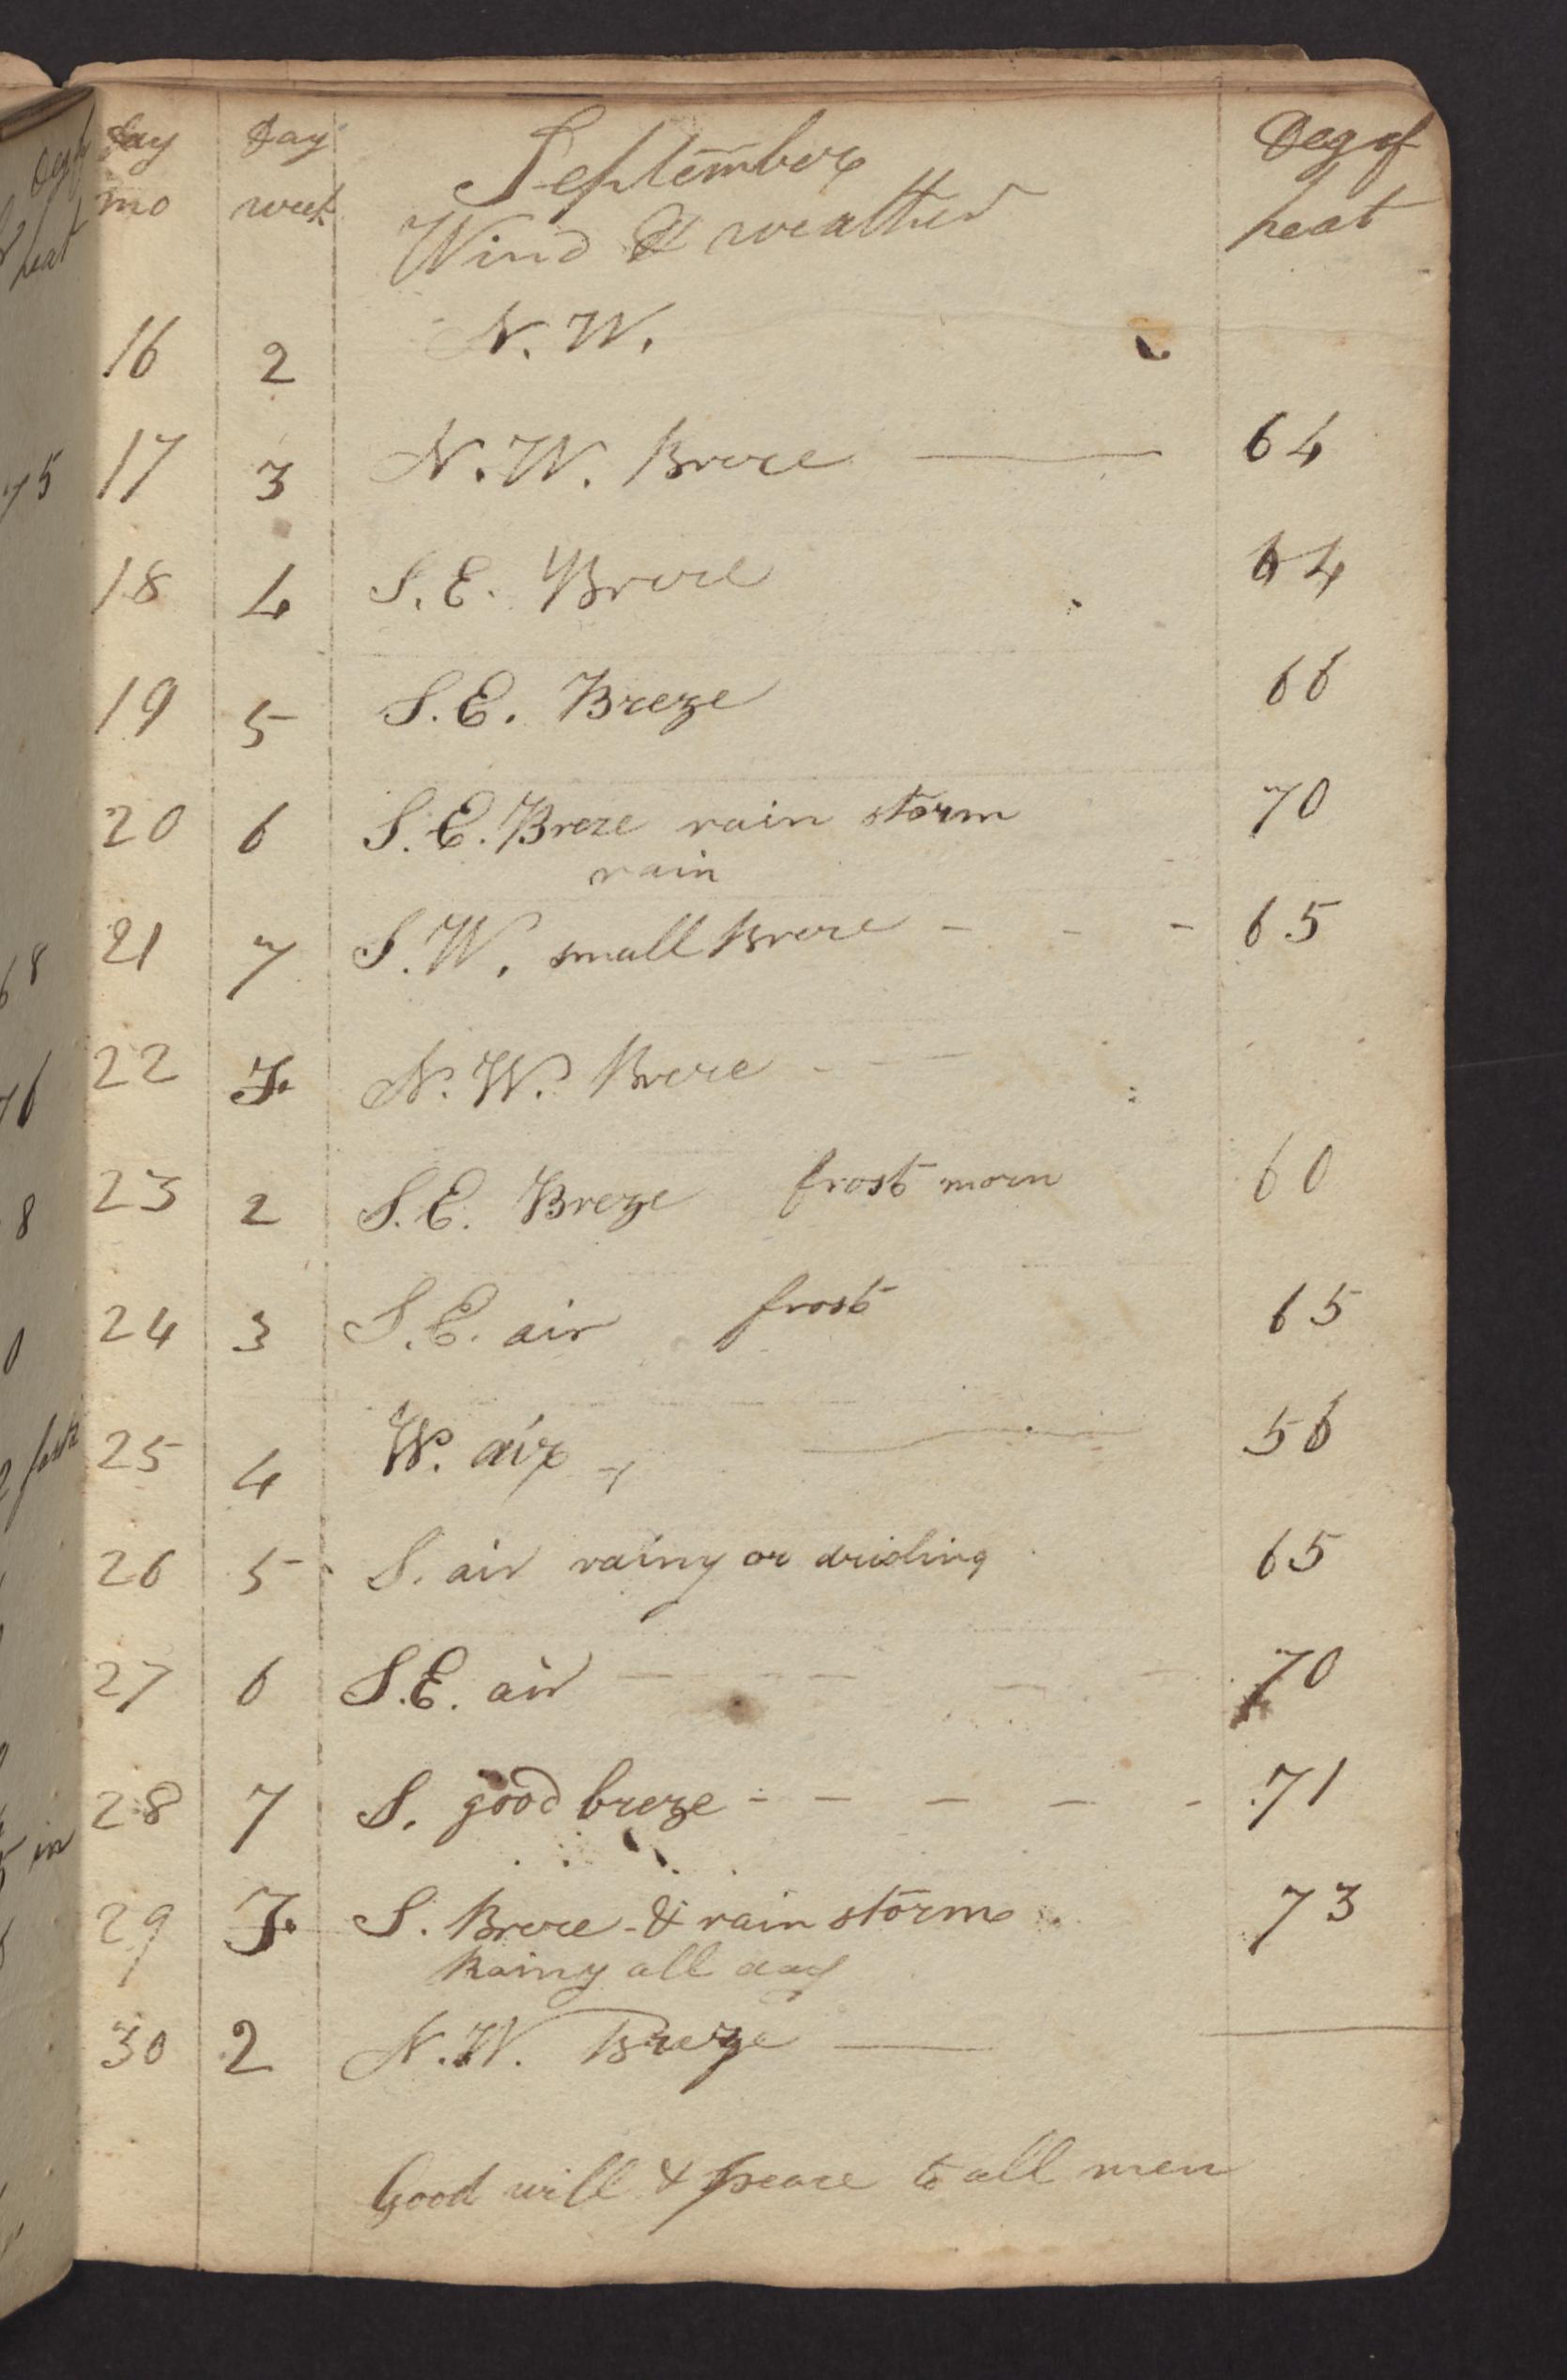 Day Day September Deg of
mo week Wind & weather heat
16 2 N. W.
17 3 N. W. Breze 64
18 4 S. E. Breze 64
19 5 S. E. Breze 66
20 6 S. E. Breze rain storm 70
rain
21 7 S. W. small Breze - - - 65
22 F. N. W. Breze - - -
23 2 S. E. Breze frost morn 60
24 3 S. E. air frost 65
25 4 W. air 56
26 5 S. air rainy or drisling 65
27 6 S. E. air 70
28 7 S. good breze - - - - - 71
29 F. S. Breze & rain storm 73
Rainy all day
30 2 N. W. Breze
Good will & peace to all men
Deg of
heat
75
68
76
8
0
in